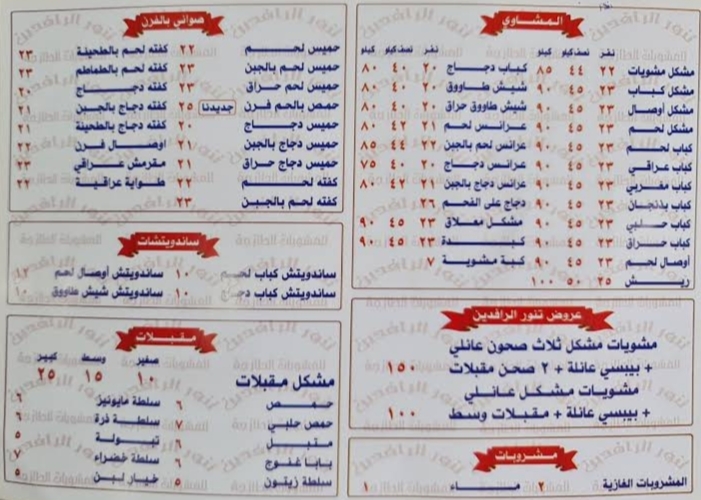 المشاوي
نفر نصف كيلو كيلو
مشكل مشويات ٢٢ ٤٤ ٨٥
مشكل كباب ٢٣ ٤٥ ٩٠
مشكل أوصال ٢٣ ٤٥ ٩٠
مشكل لحم ٢٣ ٤٥ ٩٠
كباب لحم ٢٣ ٤٥ ٩٠
كباب عراقي ٢٣ ٤٥ ٩٠
كباب مغربي ٢٣ ٤٥ ٩٠
كباب بذنجان ٢٣ ٤٥ ٩٠
كباب حلبي ٢٣ ٤٥ ٩٠
كباب حراق ٢٣ ٤٥ ٩٠
أوصال لحم ٢٣ ٤٥ ٩٠
ريش ٢٥ ٥٠ ١٠٠
نفر نصف كيلو كيلو
كباب دجاج ٢٠ ٤٠ ٨٠
شيش طاووق ٢٠ ٤٠ ٨٠
شيش طاووق حراق ٢٠ ٤٠ ٨٠
عرائس لحم ٢١ ٤٢ ٨٠
عرائس لحم بالجبن ٢٢ ٤٤ ٨٥
عرائس دجاج ٢٠ ٤٠ ٧٥
عرائس دجاج بالجبن ٢١ ٤٢ ٨٠
دجاج على الفحم ٢٦
مشكل معلاق ٢٣ ٤٥ ٩٠
كبدة ٢٣ ٤٥ ٩٠
كبة مشوية ٧
عروض تنور الرافدين
مشويات مشكل ثلاث صحون عائلي
+ بيبسي عائلة + ٢ صحن مقبلات ١٥٠
مشويات مشكل عائلي
+ بيبسي عائلة + مقبلات وسط ١٠٠
مشروبات
المشروبات الغازية ٢
ماء ١
صواني بالفرن
حميس لحم ٢٢
حميس لحم بالجبن ٢٣
حميس لحم حراق ٢٣
حمص بالحم فرن جديدنا ٢٥
حميس دجاج ٢٠
حميس دجاج بالجبن ٢١
حميس دجاج حراق ٢١
كفته لحم ٢٢
كفته لحم بالجبن ٢٣
كفته لحم بالطحينة ٢٣
كفته لحم بالطماطم ٢٣
كفته دجاج ٢٠
كفته دجاج بالجبن ٢١
كفته دجاج بالطحينة ٢١
أوصال فرن ٢٢
مقرمش عراقي ٢٣
طواية عراقية ٢٢
ساندويتشات
ساندويتش كباب لحم ١٠
ساندويتش كباب دجاج ١٠
ساندويتش أوصال لحم ١٢
ساندويتش شيش طاووق ١٠
مقبلات
صغير وسط كبير
مشكل مقبلات ١٠ ١٥ ٢٥
حمص ٦
حمص حلبي ٧
متبل ٦
بابا غنوج ٦
سلطة زيتون ٥
سلطة مايونيز ٦
سلطة ذرة ٦
تبولة ٥
سلطة خضراء ٧
خيار لبن ٥